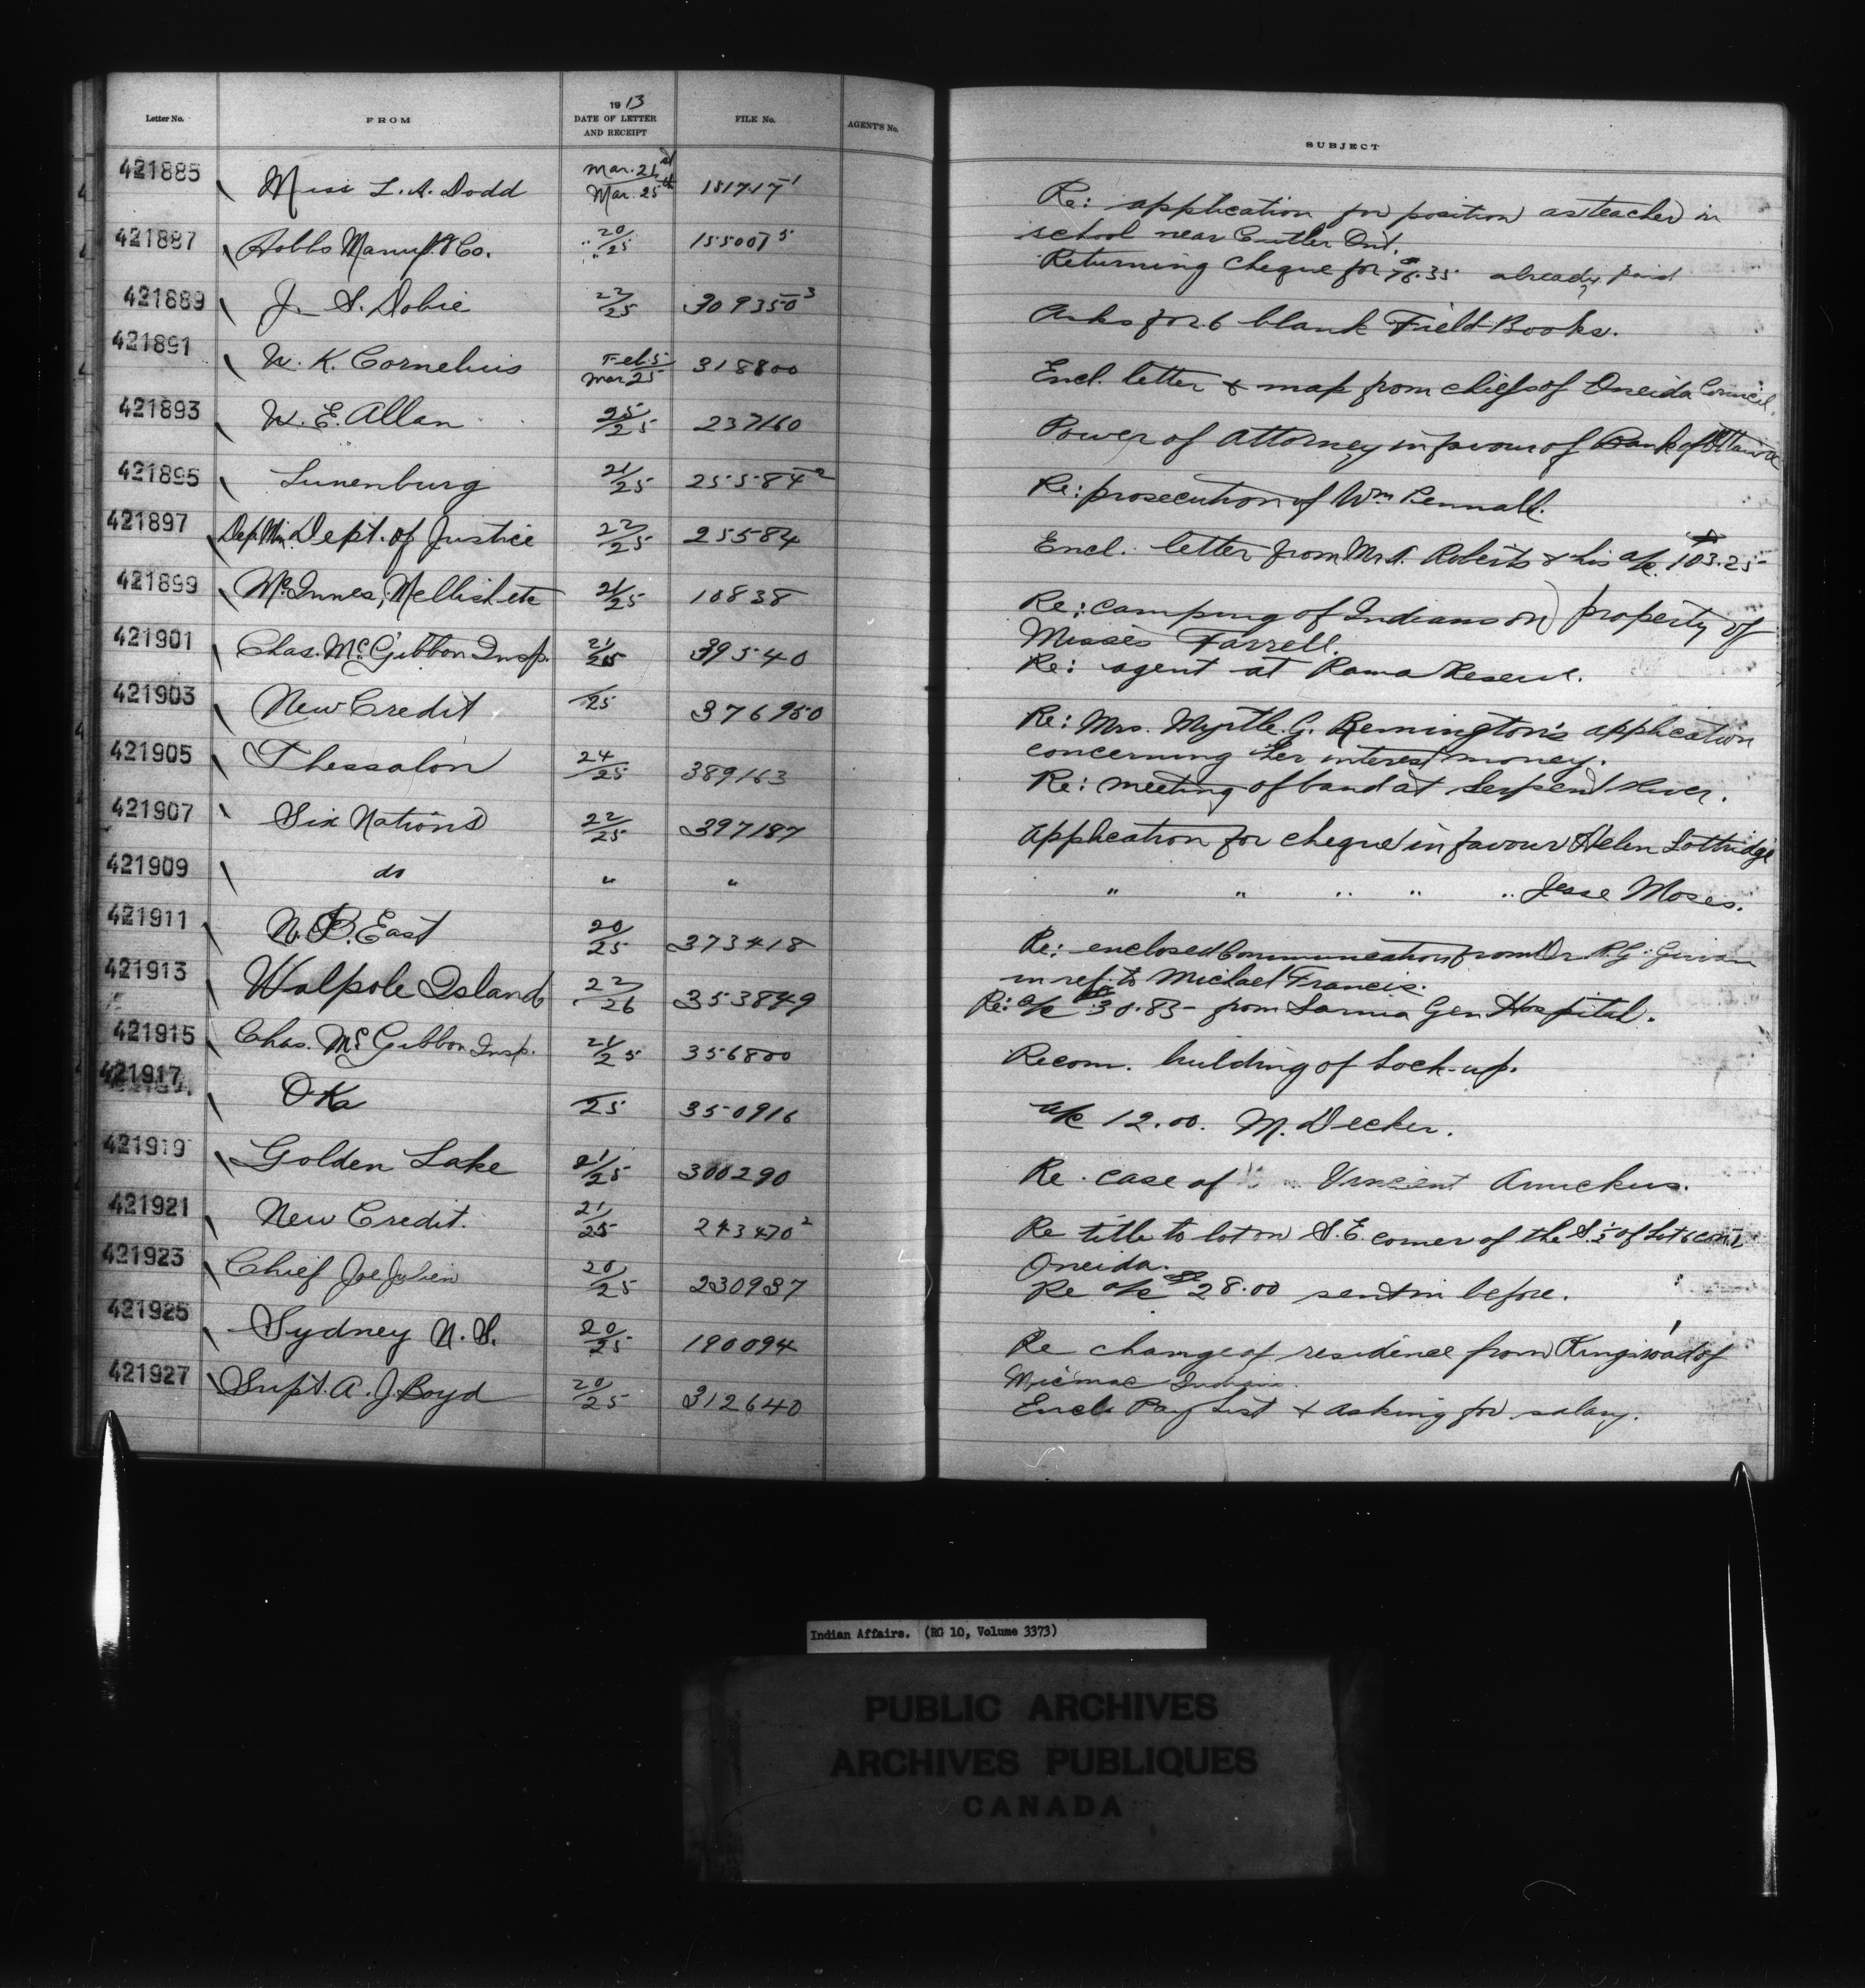 Letter No. FROM 1913 DATE OF LETTER AND RECEIPT FILE No. AGENT'S No. SUBJECT
421885 Miss L. A. Dodd Mar. 21st Mar. 25th 151717-1 Re: application for position as teacher in
school near Cutler Ont.
421887 Hobbs Manuf. Co. " 20/25 155007 5 Returning cheque for $76.35 already paid
421889 J. S. Dobie 22/25 309350 3 Asks for 6 blank Field Books.
421891 W. K. Cornelius Feb. 5 Mar 25 318800 Encl. letter & map from chiefs of Oneida Council.
421893 W. E. Allan 25/25 237160 Power of Attorney in favour of Bank of Ottawa
421895 Lunenburg 21/25 25584 2 Re: prosecution of Wm Pennall.
421897 Dep. Min. Dept. of Justice 22/25 25584 Encl. letter from Mr. Roberts & his a/c. $103.25
421899 McInnes, Mellish etc 21/25 10838 Re: camping of Indians on property of
Misses Farrell.
421901 Chas. McGibbon Insp. 21/25 39540 Re: agent at Rama Reserve.
421903 New Credit /25 376950 Re: Mrs. Myrtle G. Remington's application
concerning her interest money.
421905 Thessalon 24/25 389163 Re: meeting of band at Serpent River.
421907 Six Nations 22/25 397187 Application for cheque in favour Helen Lottridge
421909 do " " " " " " " Jesse Moses.
421911 N. B. East 20/25 373418 Re: enclosed communication from Dr R. G. Girvan
in ref. to Michael Francis.
421913 Walpole Island 22/26 353849 Re: a/c $30.83 - from Sarnia Gen Hospital.
421915 Chas. McGibbon Insp. 21/25 356800 Recom. building of Lock-up.
421917 Oka /25 350916 a/c 12.00. M. Decker.
421919 Golden Lake 21/25 300290 Re case of Vincent
421921 New Credit. 21/25 243470 2 Re title to lot on S.E. corner of the S. ½ of Lot 6 con. 1
Oneida.
421923 Chief Joe Julien 20/25 230937 Re a/c $28.00 sent in before.
421925 Sydney N. S. 20/25 190094 Re change of residence from Kings road of
Micmac Indians.
421927 Supt. A. J. Boyd 20/25 312640 Encl. Pay List & asking for salary.
Indian Affairs. (RG 10, Volume 3373)
PUBLIC ARCHIVES
ARCHIVES PUBLIQUES
CANADA